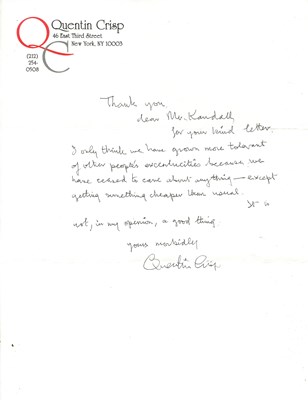 Quentin Crisp
46 East Third Street
New York, NY 10003
QC
(212)
254-
0508
Thank you
dear Mr. Kandall
for your kind letter.
I only think we have grown more tolerant
of other people's eccentricities because we
have ceased to care about anything — except
getting something cheaper than usual.
It is
not, in my opinion, a good thing.
yours morbidly
Quentin Crisp